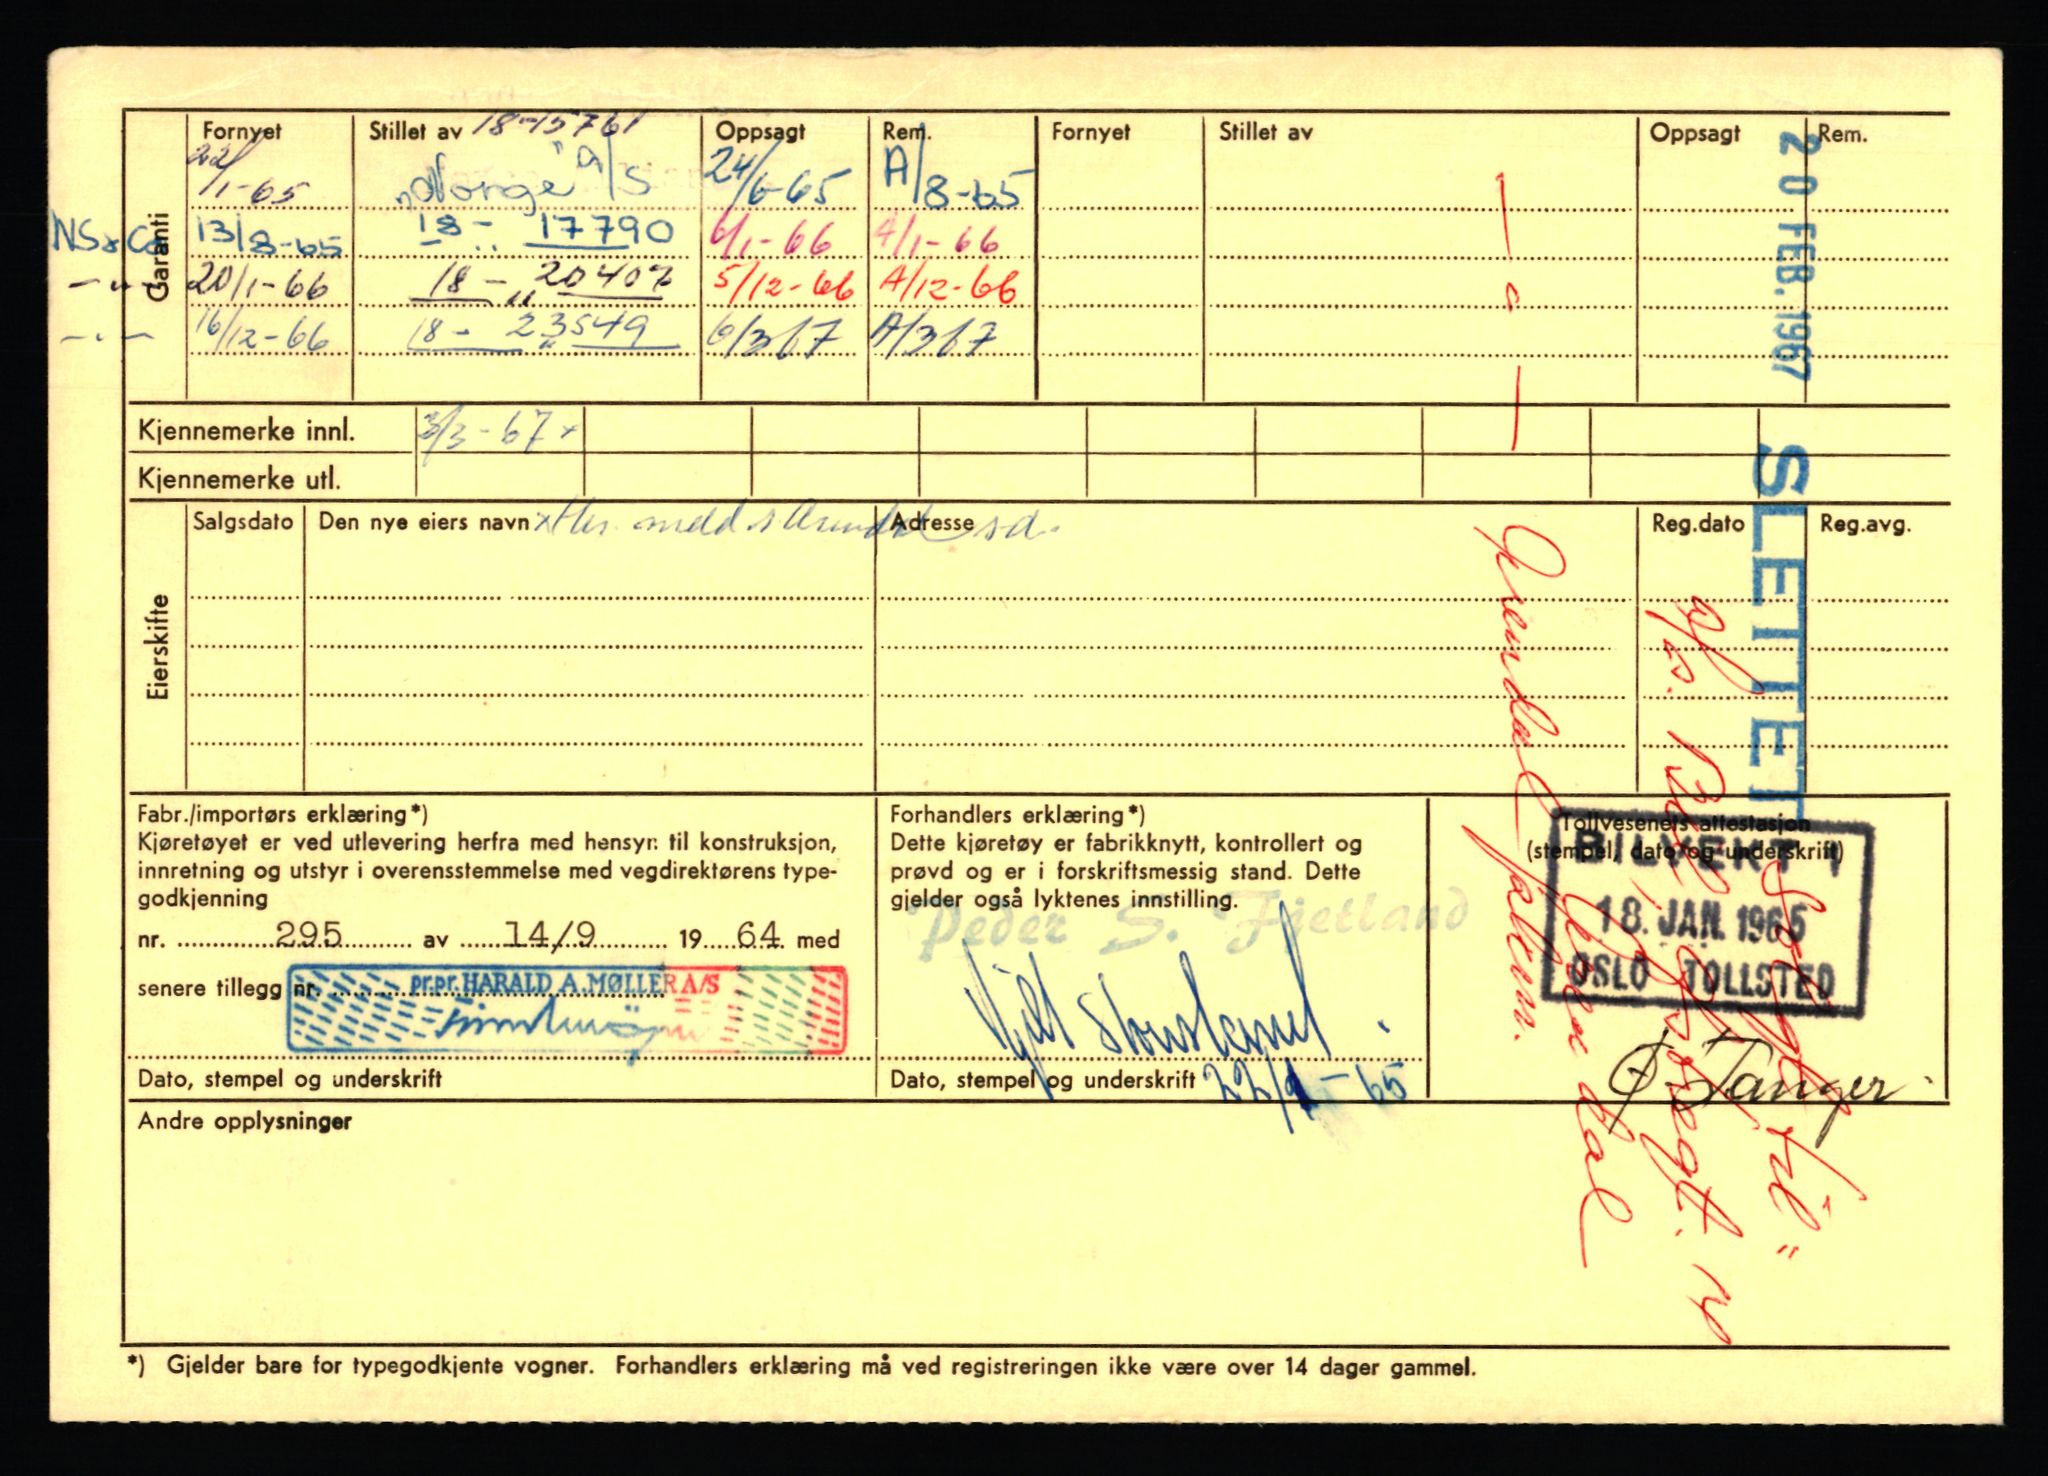 Garanti
Fornyet Stillet av 18-15761 Oppsagt Rem. Fornyet Stillet av Oppsagt Rem.
22/1-65 "Norge" A/S 24/6-65 A/8-65
NS & Co 13/8-65 18- 17790 6/1-66 A/1-66
-"- 20/1-66 18- 20407 5/12-66 A/12-66
-"- 16/12-66 18- 23549 6/3 67 A/3 67
20 FEB. 1967
SLETTET
Kjennemerke innl. 3/3-67 x
Kjennemerke utl.
Eierskifte
Salgsdato Den nye eiers navn Adresse Reg.dato Reg.avg.
x Arendal s.d.
Solgt til
A/S
Arendal
Fabr./importørs erklæring*)
Kjøretøyet er ved utlevering herfra med hensyn til konstruksjon,
innretning og utstyr i overensstemmelse med vegdirektørens type-
godkjenning
nr. 295 av 14/9 19 64 med
senere tillegg nr.
pr.pr. HARALD A. MØLLER A/S
Dato, stempel og underskrift
Forhandlers erklæring*)
Dette kjøretøy er fabrikknytt, kontrollert og
prøvd og er i forskriftsmessig stand. Dette
gjelder også lyktenes innstilling.
Peder S. Fjetland
Dato, stempel og underskrift 22/1-65
Tollvesenets attestasjon
(stempel, dato og underskrift)
BILVEKT
18. JAN. 1965
OSLO TOLLSTED
Ø Tanger
Andre opplysninger
*) Gjelder bare for typegodkjente vogner. Forhandlers erklæring må ved registreringen ikke være over 14 dager gammel.